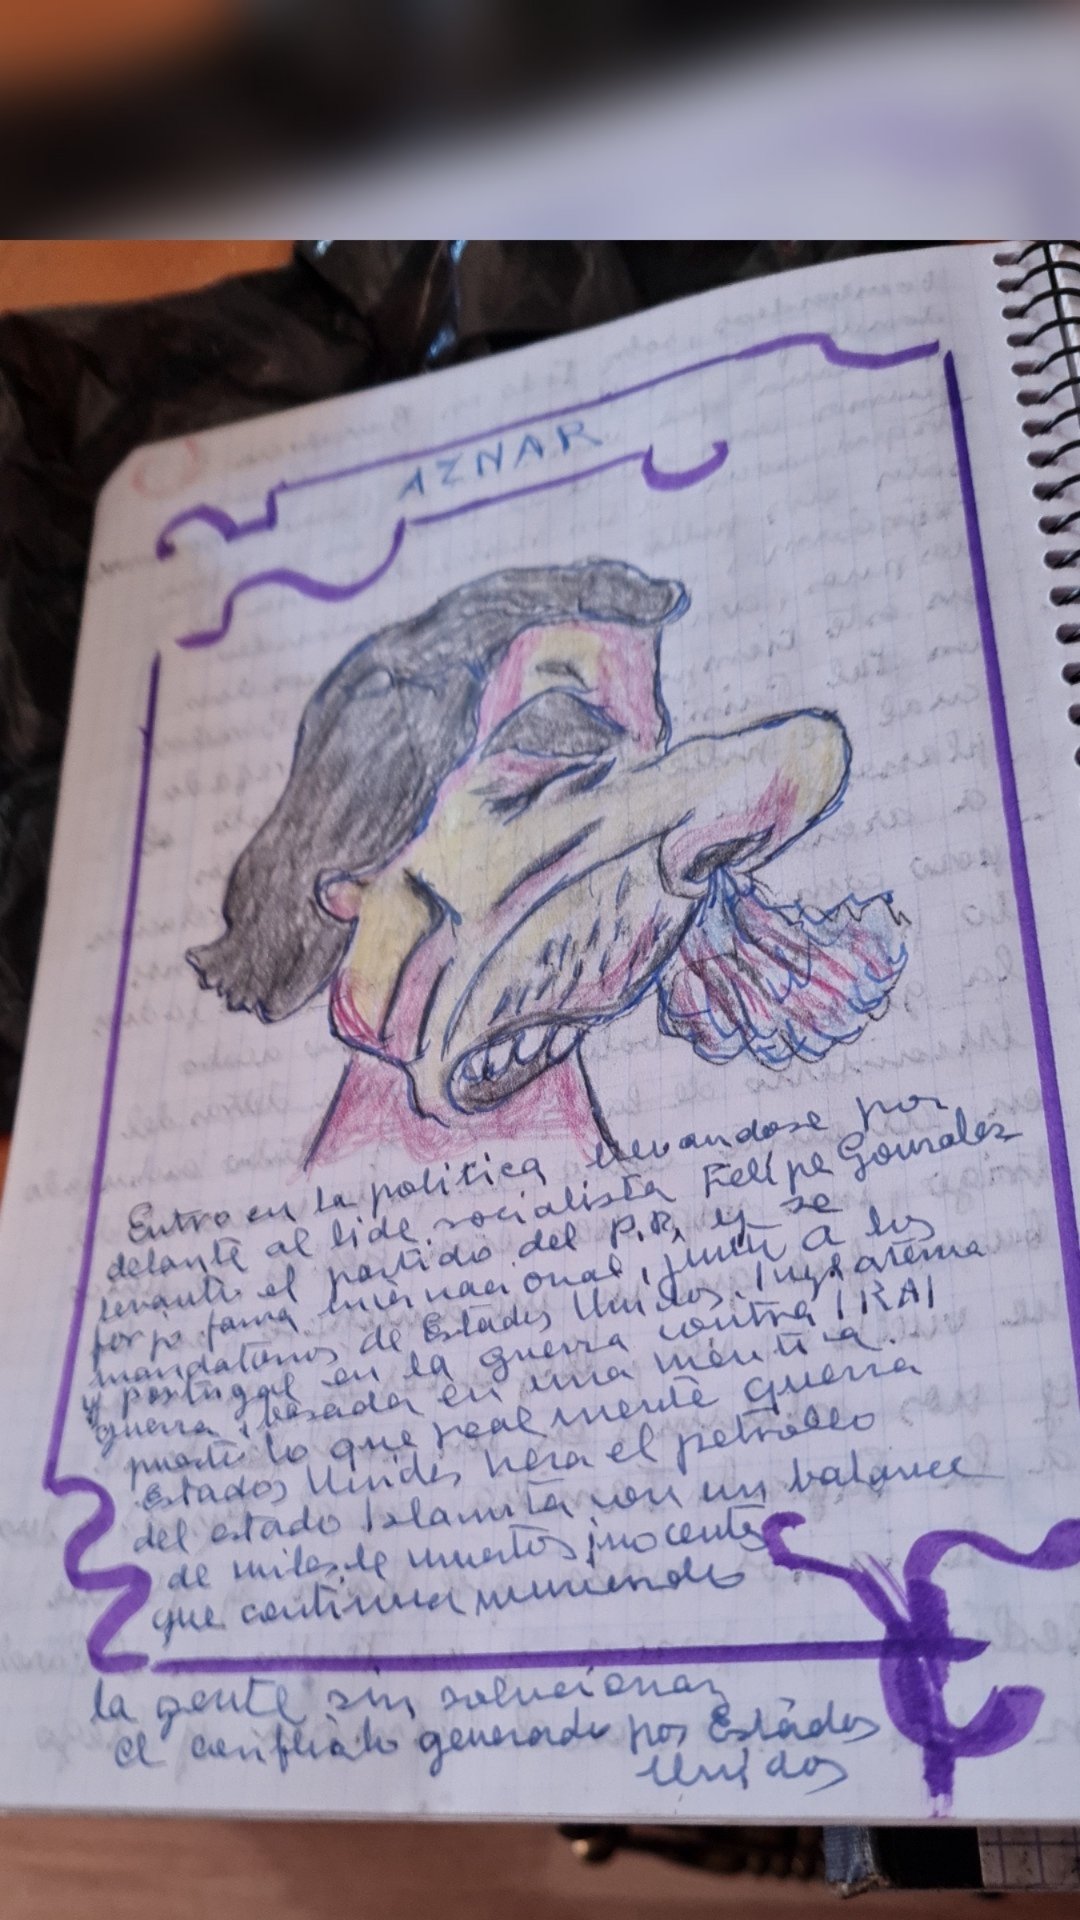 AZNAR
Entro en la politica llevandose por
delante al lide socialista Felipe Gonzalez
levanto el partido del P.P, y se
forjo fama internacional, junto a los
mandatarios de Estados Unidos, Inglaterra
y portugal en la guerra contra IRAI
guerra, basada en una mentira.
puesto lo que realmente queria
Estados Unidos hera el petroleo
del estado Islamita con un balance
de miles de muertos inocentes
que continua muriendo
la gente sin solucionar
el conflicto generado por Estados
Unidos